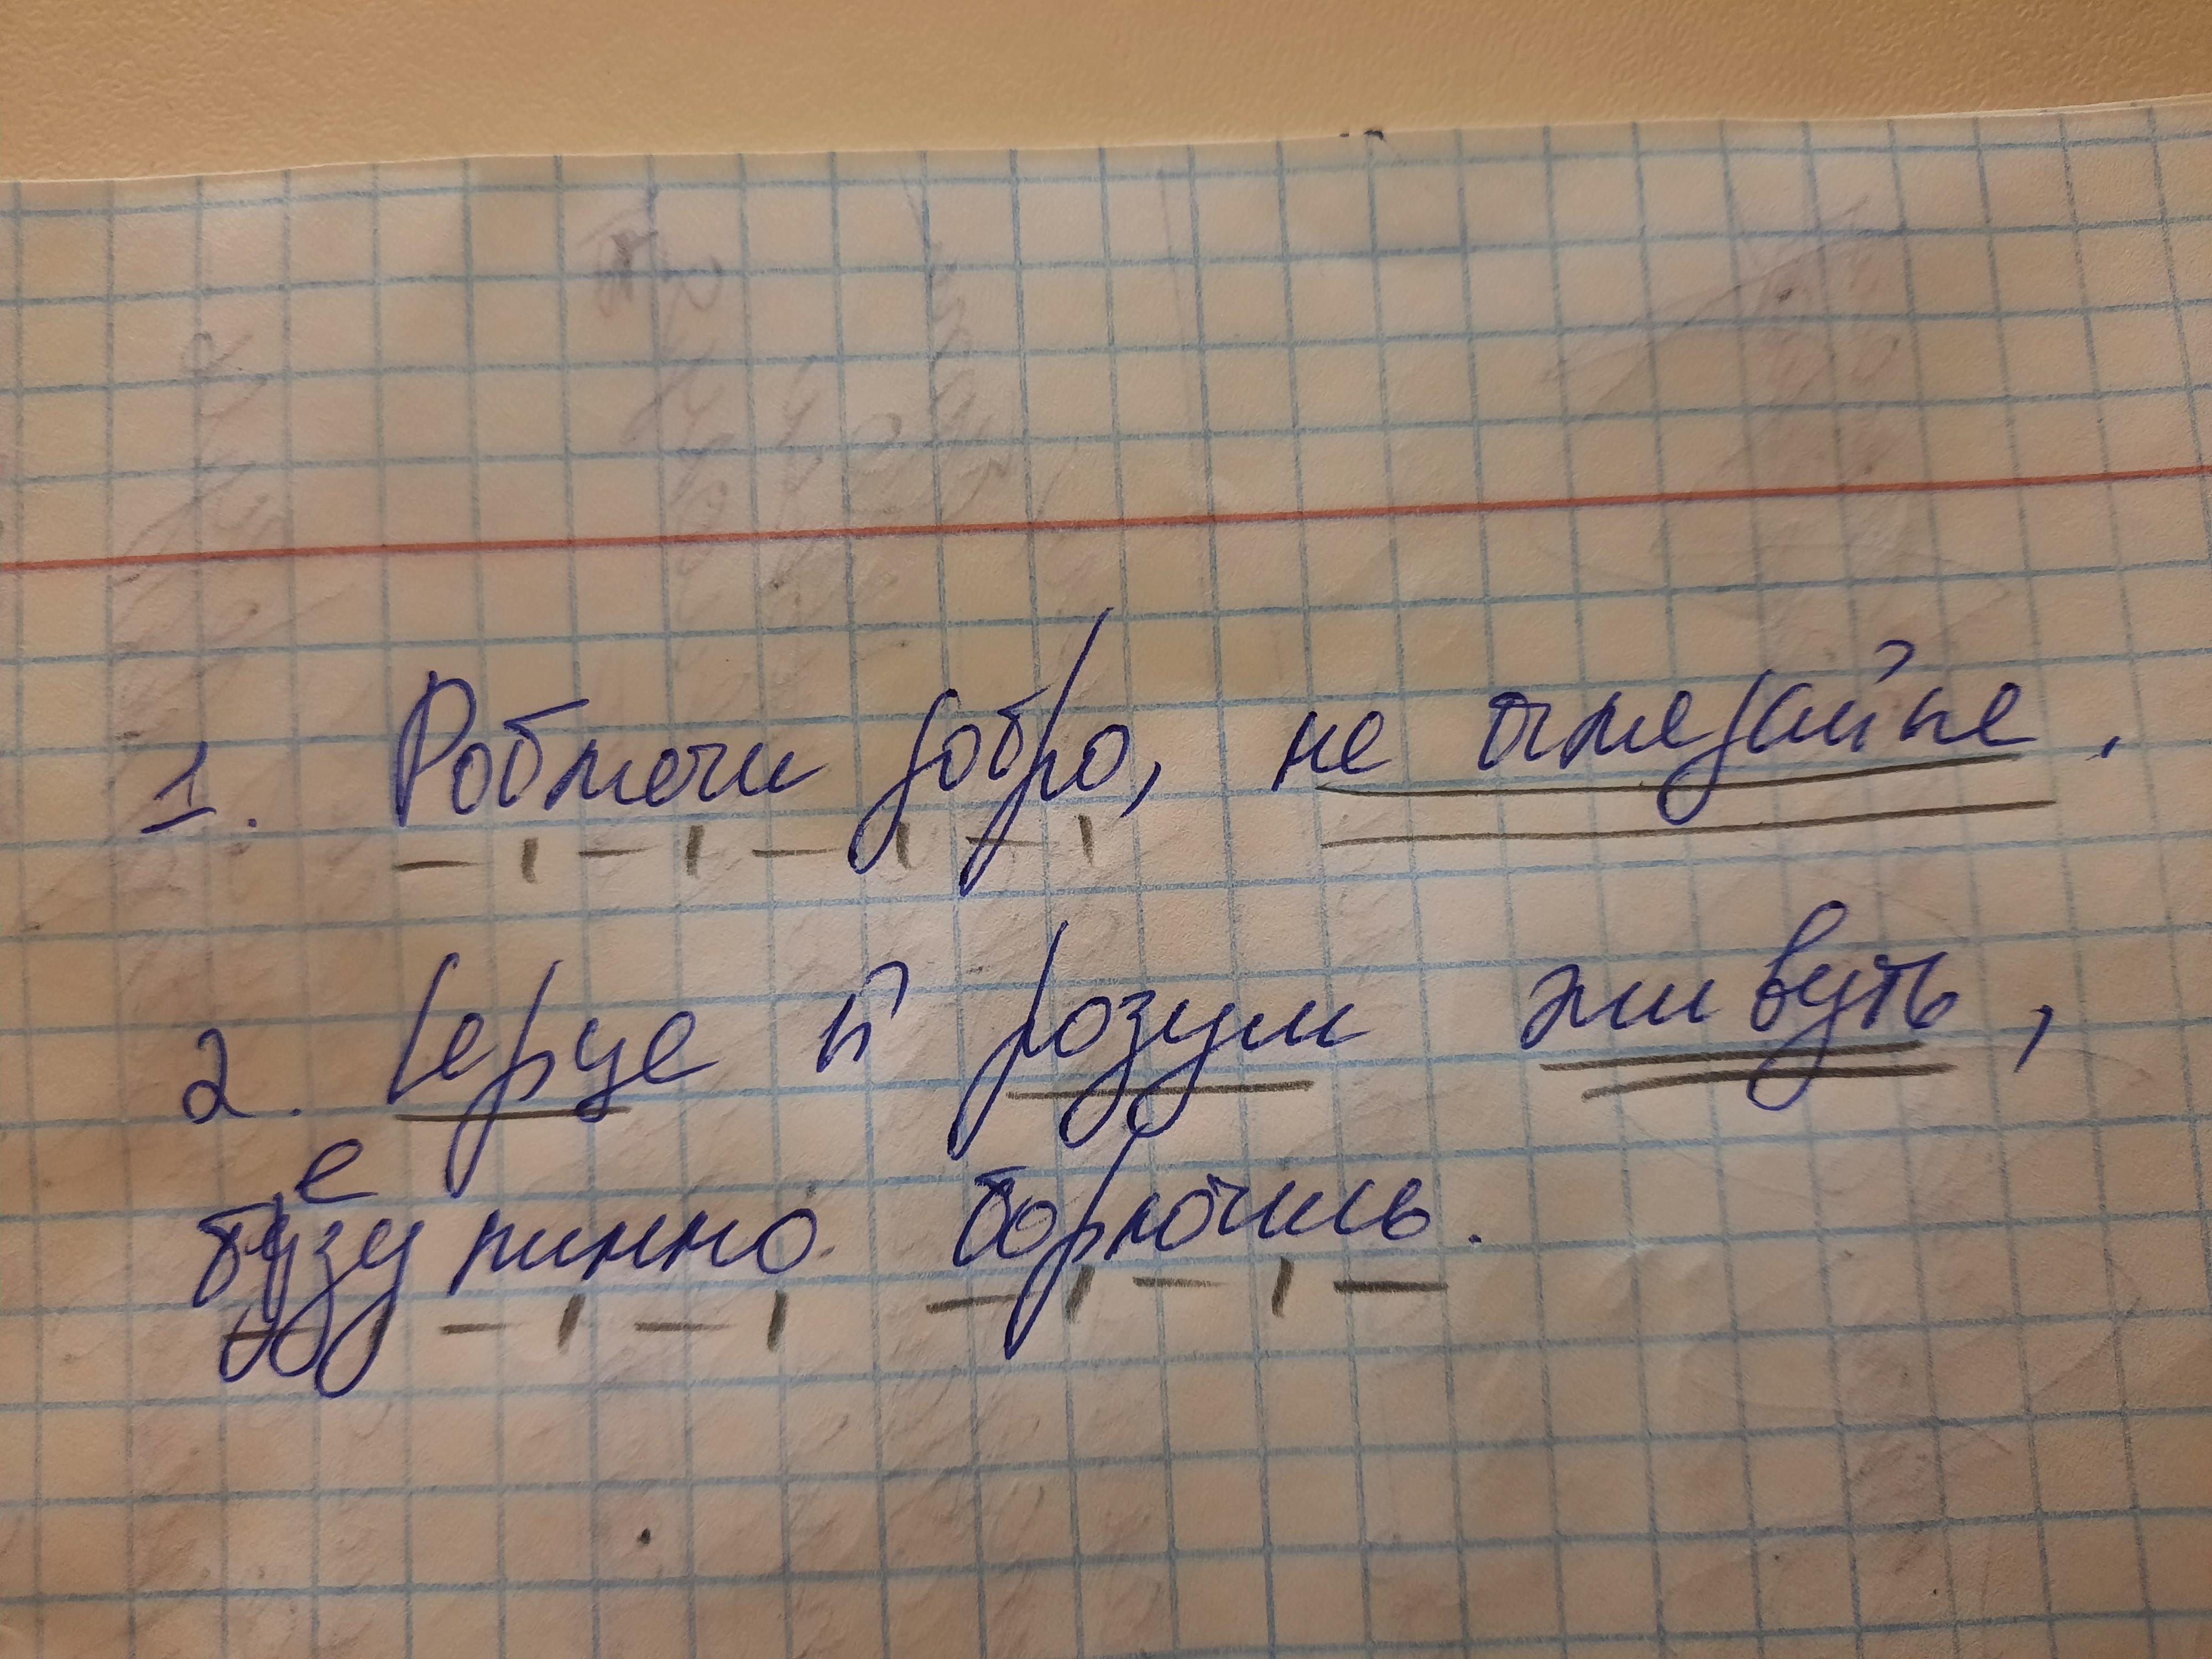 1. Роблючи добро, не
2. Серце й розум живуть,
безупинно борючись.